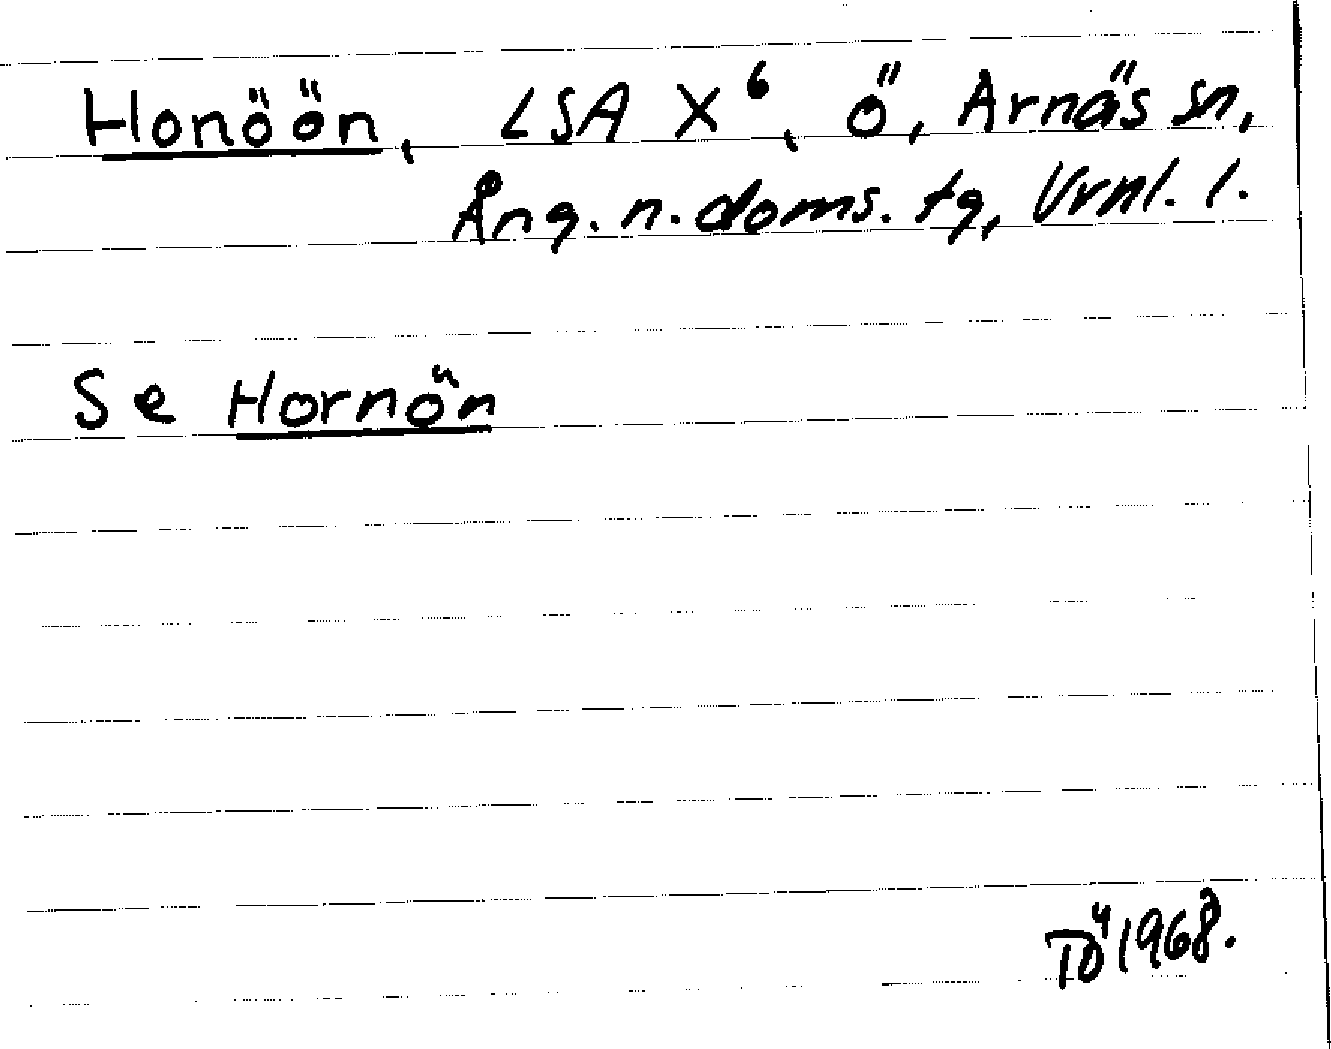 Honöön, LSA X⁶, ö, Arnäs sn,
Ång. n. doms. tg, Vrnl. l.
Se Hornön
TÖ 1968.